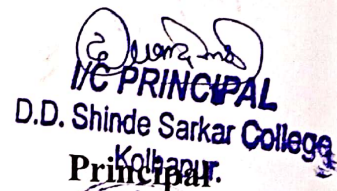 I/C PRINCIPAL
D.D. Shinde Sarkar College
Kolhapur.
Principal.